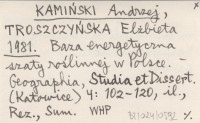 KAMIŃSKI Andrzej,
TROSZCZYŃSKA Elżbieta
1981. Baza energetyczna
szaty roślinnej w Polsce. -
Geographia, Studia et Dissert.
(Katowice) 4: 102-120, il.,
Rez., Sum. WHP